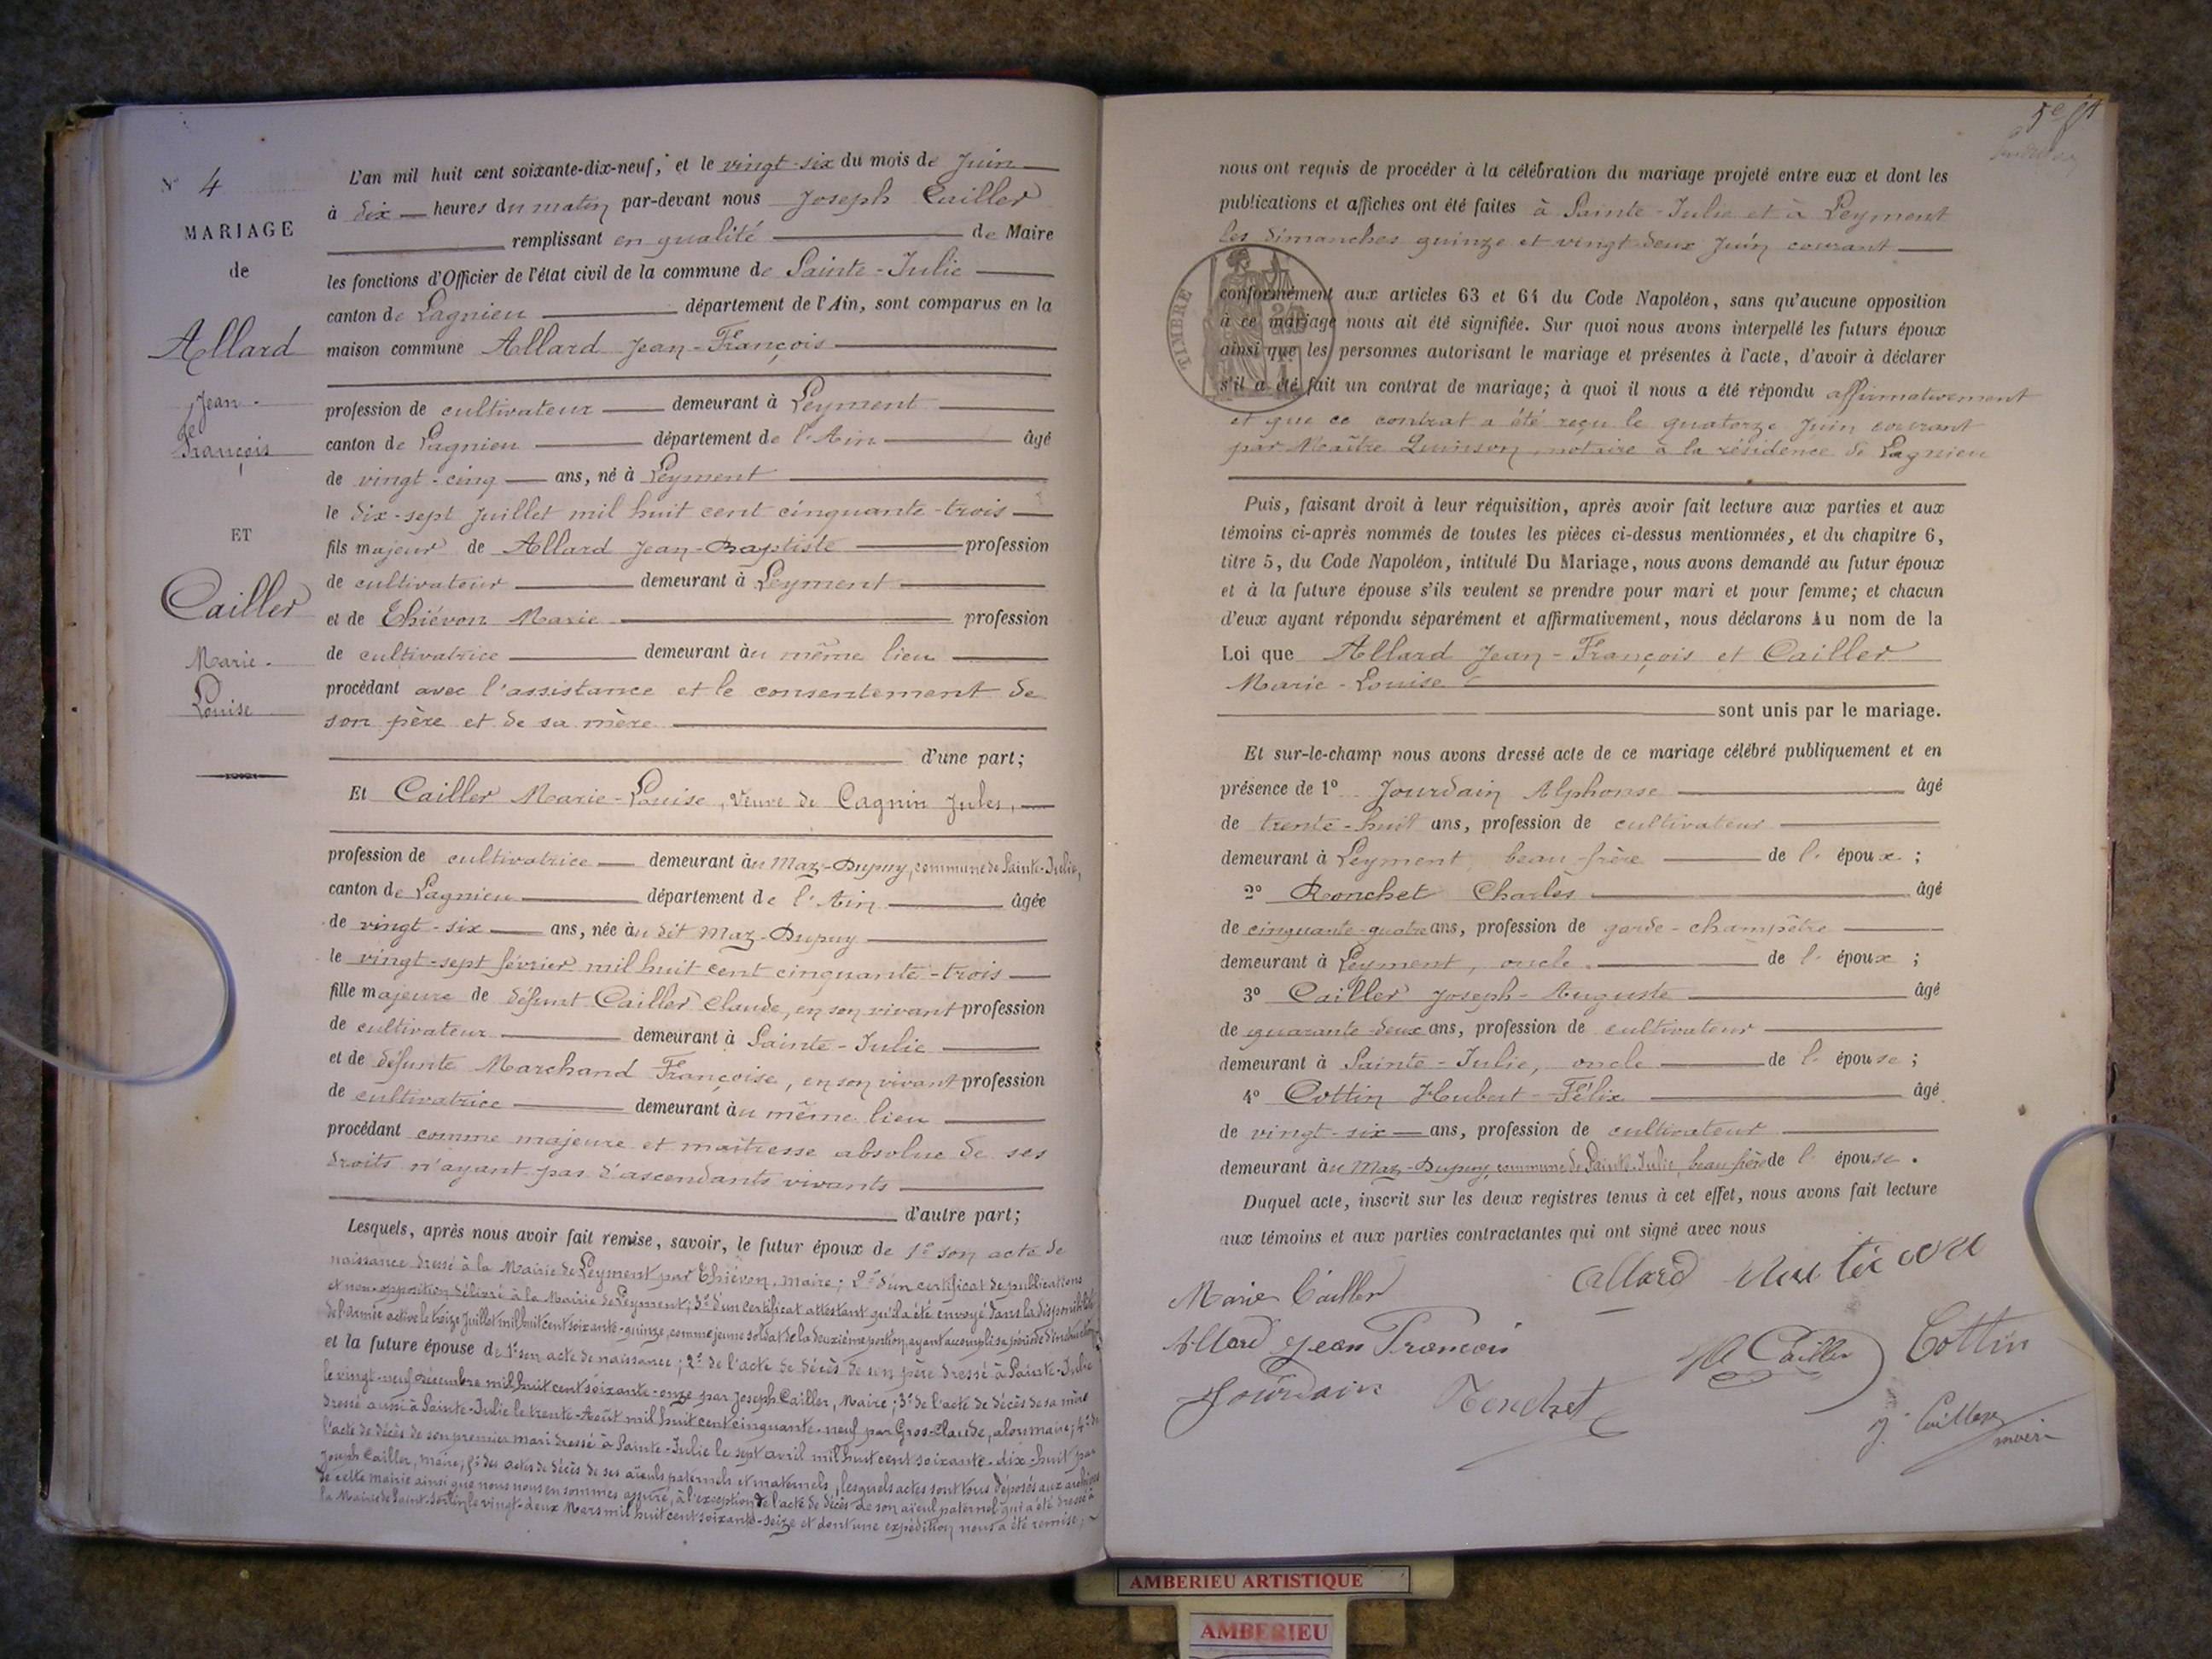 N° 4
MARIAGE
de
Allard
Jean-
François
ET
Cailler
Marie-
Louise
L'an mil huit cent soixante-dix-neuf, et le vingt-six du mois de Juin
à dix heures du matin par-devant nous Joseph Cailler
remplissant en qualité de Maire
les fonctions d'Officier de l'état civil de la commune de Sainte-Julie
canton de Lagnieu département de l'Ain, sont comparus en la
maison commune Allard Jean-François
profession de cultivateur demeurant à Leyment
canton de Lagnieu département de l'Ain âgé
de vingt-cinq ans, né à Leyment
le dix-sept Juillet mil huit cent cinquante-trois
fils majeur de Allard Jean-Baptiste profession
de cultivateur demeurant à Leyment
et de Thiévon Marie profession
de cultivatrice demeurant au même lieu
procédant avec l'assistance et le consentement de
son père et de sa mère
d'une part;
Et Cailler Marie-Louise, veuve de Cagnin Jules,
profession de cultivatrice demeurant au Maz-Dupuy, commune de Sainte-Julie,
canton de Lagnieu département de l'Ain âgée
de vingt-six ans, née au dit Maz-Dupuy
le vingt-sept février mil huit cent cinquante-trois
fille majeure de défunt Cailler Claude, en son vivant profession
de cultivateur demeurant à Sainte-Julie
et de défunte Marchand Françoise, en son vivant profession
de cultivatrice demeurant au même lieu
procédant comme majeure et maîtresse absolue de ses
droits n'ayant pas d'ascendants vivants
d'autre part;
Lesquels, après nous avoir fait remise, savoir, le futur époux de 1° son acte de
naissance dressé à la Mairie de Leyment par Thiévon, maire; 2° d'un certificat de publications
et non-opposition délivré à la Mairie de Leyment; 3° d'un certificat attestant qu'il a été envoyé dans la disponibilité
de l'armée active le treize Juillet mil huit cent soixante-quinze, comme jeune soldat de la deuxième portion, ayant accompli sa période d'instruction,
et la future épouse de 1° son acte de naissance; 2° de l'acte de décès de son père dressé à Sainte-Julie
le vingt-neuf décembre mil huit cent soixante-onze par Joseph Cailler, Maire; 3° de l'acte de décès de sa mère
dressé aussi à Sainte-Julie le trente-Août mil huit cent cinquante-neuf par Gros-Claude, alors maire; 4° de
l'acte de décès de son premier mari dressé à Sainte-Julie le sept avril mil huit cent soixante-dix-huit par
Joseph Cailler, maire; 5° des actes de décès de ses aïeuls paternels et maternels, lesquels actes sont tous déposés aux archives
de cette mairie ainsi que nous nous en sommes assuré, à l'exception de l'acte de décès de son aïeul paternel qui a été dressé à
la Mairie de Saint- le vingt-deux Mars mil huit cent soixante-seize et dont une expédition nous a été remise,
nous ont requis de procéder à la célébration du mariage projeté entre eux et dont les
publications et affiches ont été faites à Sainte-Julie et à Leyment
les dimanches quinze et vingt-deux Juin courant
TIMBRE
conformément aux articles 63 et 64 du Code Napoléon, sans qu'aucune opposition
à ce mariage nous ait été signifiée. Sur quoi nous avons interpellé les futurs époux
ainsi que les personnes autorisant le mariage et présentes à l'acte, d'avoir à déclarer
s'il a été fait un contrat de mariage; à quoi il nous a été répondu affirmativement
et que ce contrat a été reçu le quatorze Juin courant
par Maître Quinson, notaire à la résidence de Lagnieu
Puis, faisant droit à leur réquisition, après avoir fait lecture aux parties et aux
témoins ci-après nommés de toutes les pièces ci-dessus mentionnées, et du chapitre 6,
titre 5, du Code Napoléon, intitulé Du Mariage, nous avons demandé au futur époux
et à la future épouse s'ils veulent se prendre pour mari et pour femme; et chacun
d'eux ayant répondu séparément et affirmativement, nous déclarons Au nom de la
Loi que Allard Jean-François et Cailler
Marie-Louise
sont unis par le mariage.
Et sur-le-champ nous avons dressé acte de ce mariage célébré publiquement et en
présence de 1° Jourdain Alphonse âgé
de trente-huit ans, profession de cultivateur
demeurant à Leyment, beau-frère de l'époux;
2° Ronchet Charles âgé
de cinquante-quatre ans, profession de garde-champêtre
demeurant à Leyment, oncle de l'époux;
3° Cailler Joseph-Auguste âgé
de quarante-deux ans, profession de cultivateur
demeurant à Sainte-Julie, oncle de l'épouse;
4° Cottin Hubert-Félix âgé
de vingt-six ans, profession de cultivateur
demeurant au Maz-Dupuy, commune de Sainte-Julie, beau frère de l'épouse.
Duquel acte, inscrit sur les deux registres tenus à cet effet, nous avons fait lecture
aux témoins et aux parties contractantes qui ont signé avec nous
Allard
Marie Cailler
Allard Jean Francois
Cailler Cottin
Jourdain Ronchet
J. Cailler
maire
AMBERIEU ARTISTIQUE
AMBERIEU